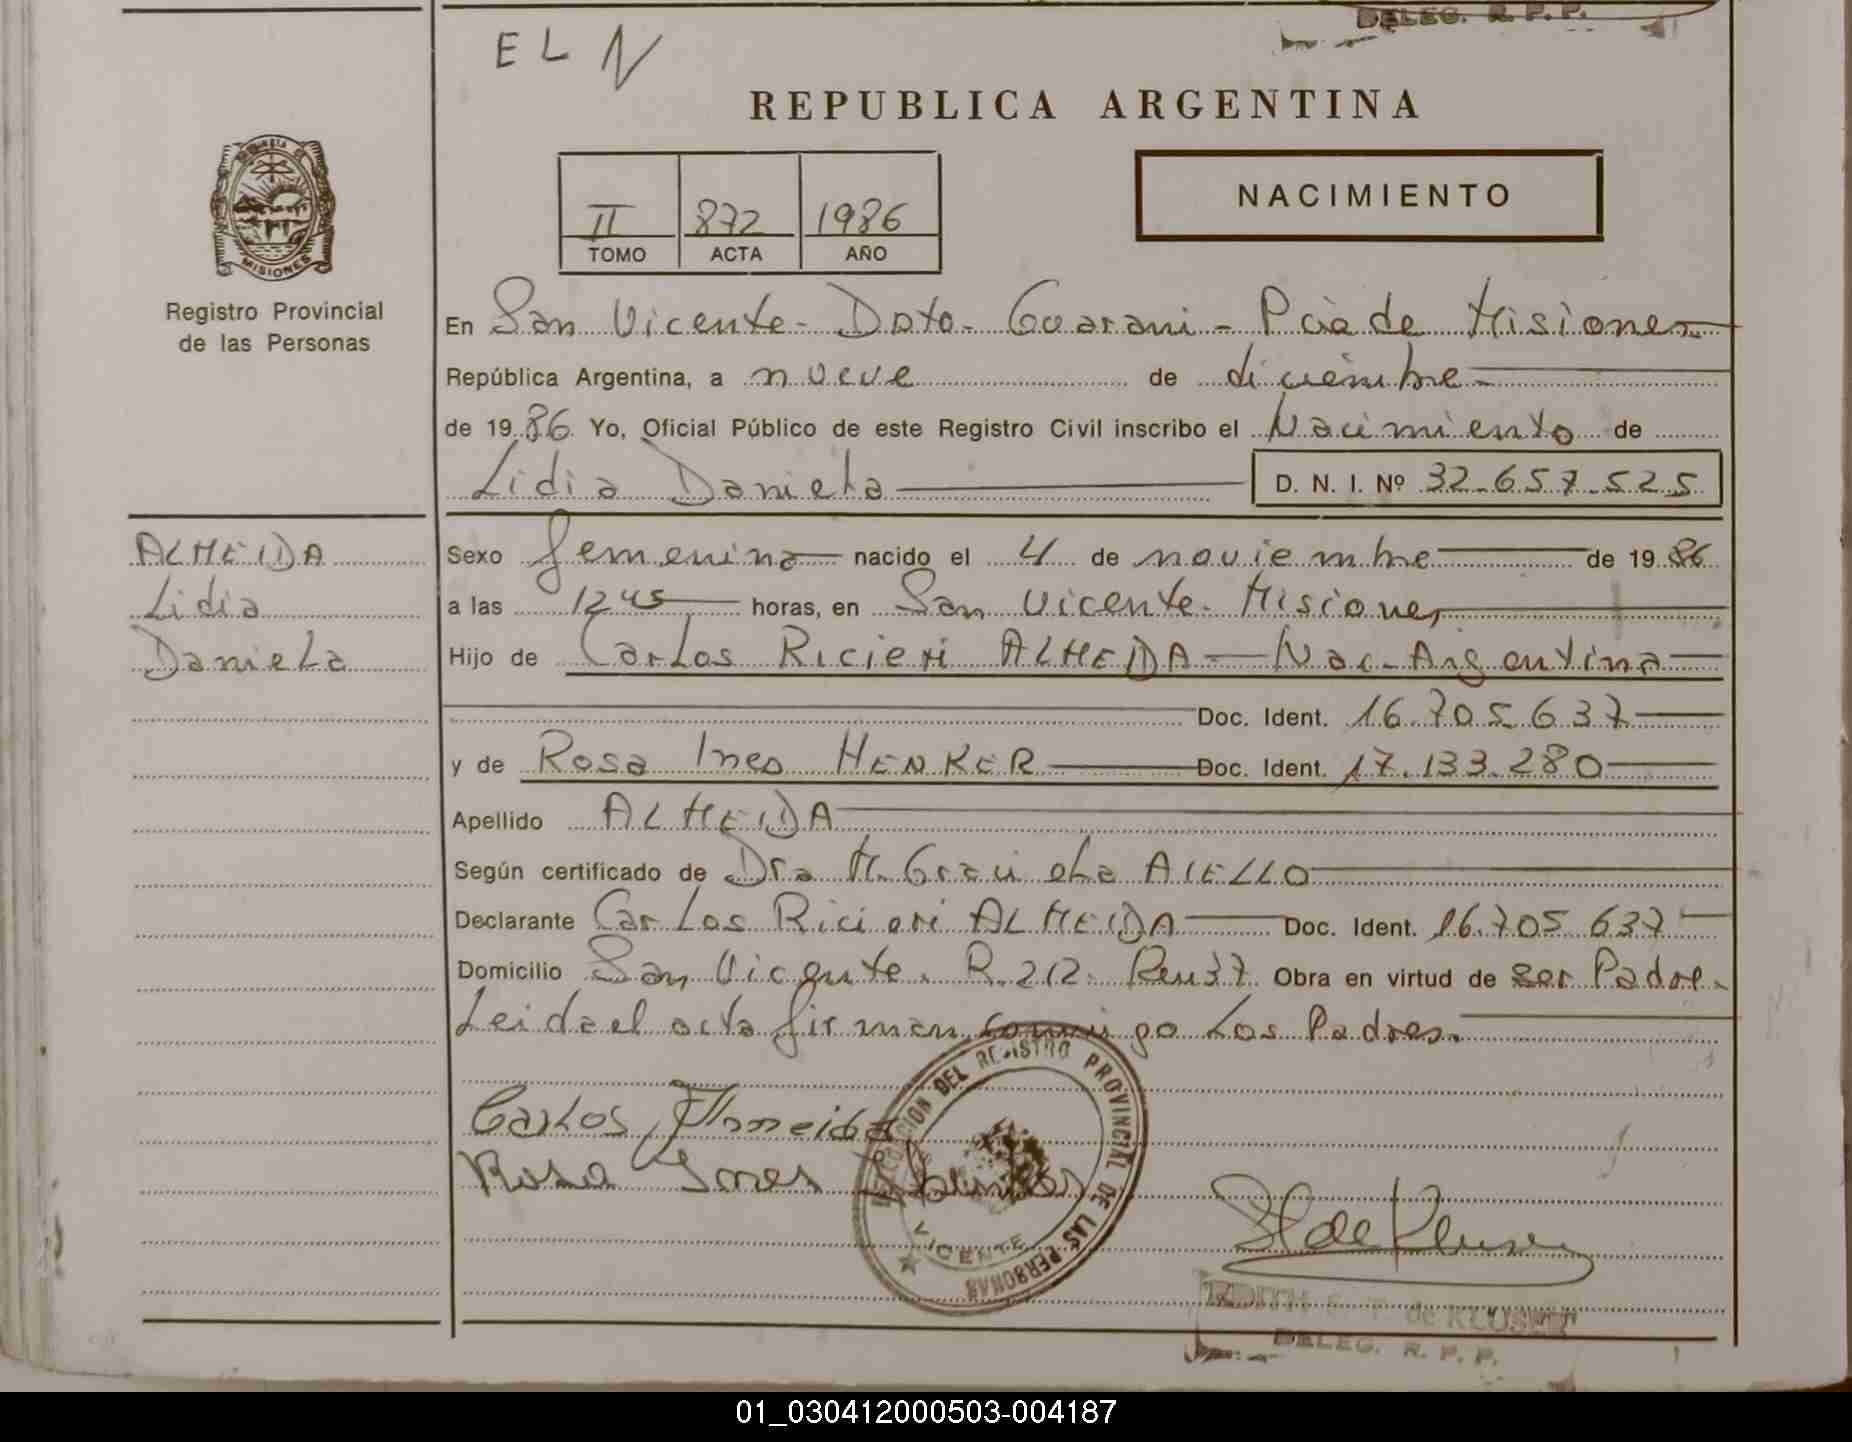 DELEG. R. P. P.
E L N
REPUBLICA ARGENTINA
NACIMIENTO
II 872 1986
TOMO ACTA AÑO
MISIONES
Registro Provincial
de las Personas
En San Vicente - Dpto. Guarani - Pcia de Misiones
República Argentina, a nueve de diciembre
de 19 86 Yo, Oficial Público de este Registro Civil inscribo el Nacimiento de
Lidia Daniela D. N. I. Nº 32.657.525
ALMEIDA
Lidia
Daniela
Sexo femenino nacido el 4 de noviembre de 19 86
a las 12 45 horas, en San Vicente - Misiones
Hijo de Carlos Ricieri ALMEIDA - Nac. Argentina
Doc. Ident. 16.705.637
y de Rosa Ines HENKER Doc. Ident. 17.133.280
Apellido ALMEIDA
Según certificado de Dra M. Graciela AIELLO
Declarante Carlos Ricieri ALMEIDA Doc. Ident. 16.705.637
Domicilio San Vicente. R. 212. Obra en virtud de ser Padre.
Leida el acta firman conmigo Los Padres.
Carlos Almeida
Rosa Ines
DELEGACION DEL REGISTRO PROVINCIAL DE LAS PERSONAS
VICENTE
EDITH de KLUSENER
DELEG. R. P. P.
01_030412000503-004187